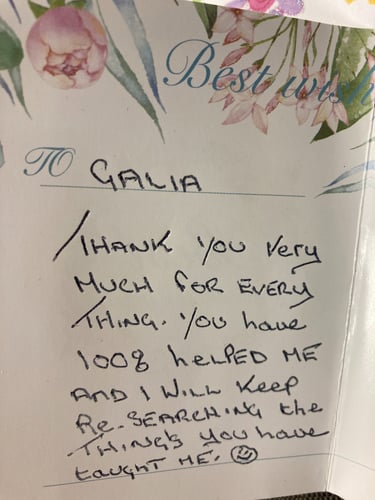 Best wish
TO GALIA
THANK YOU Very
MUCH FOR EVERY
THING. YOU have
100% helPED ME
AND I WILL KeeP
Re-SEARCHING the
THING'S YOU have
taught ME. ☺